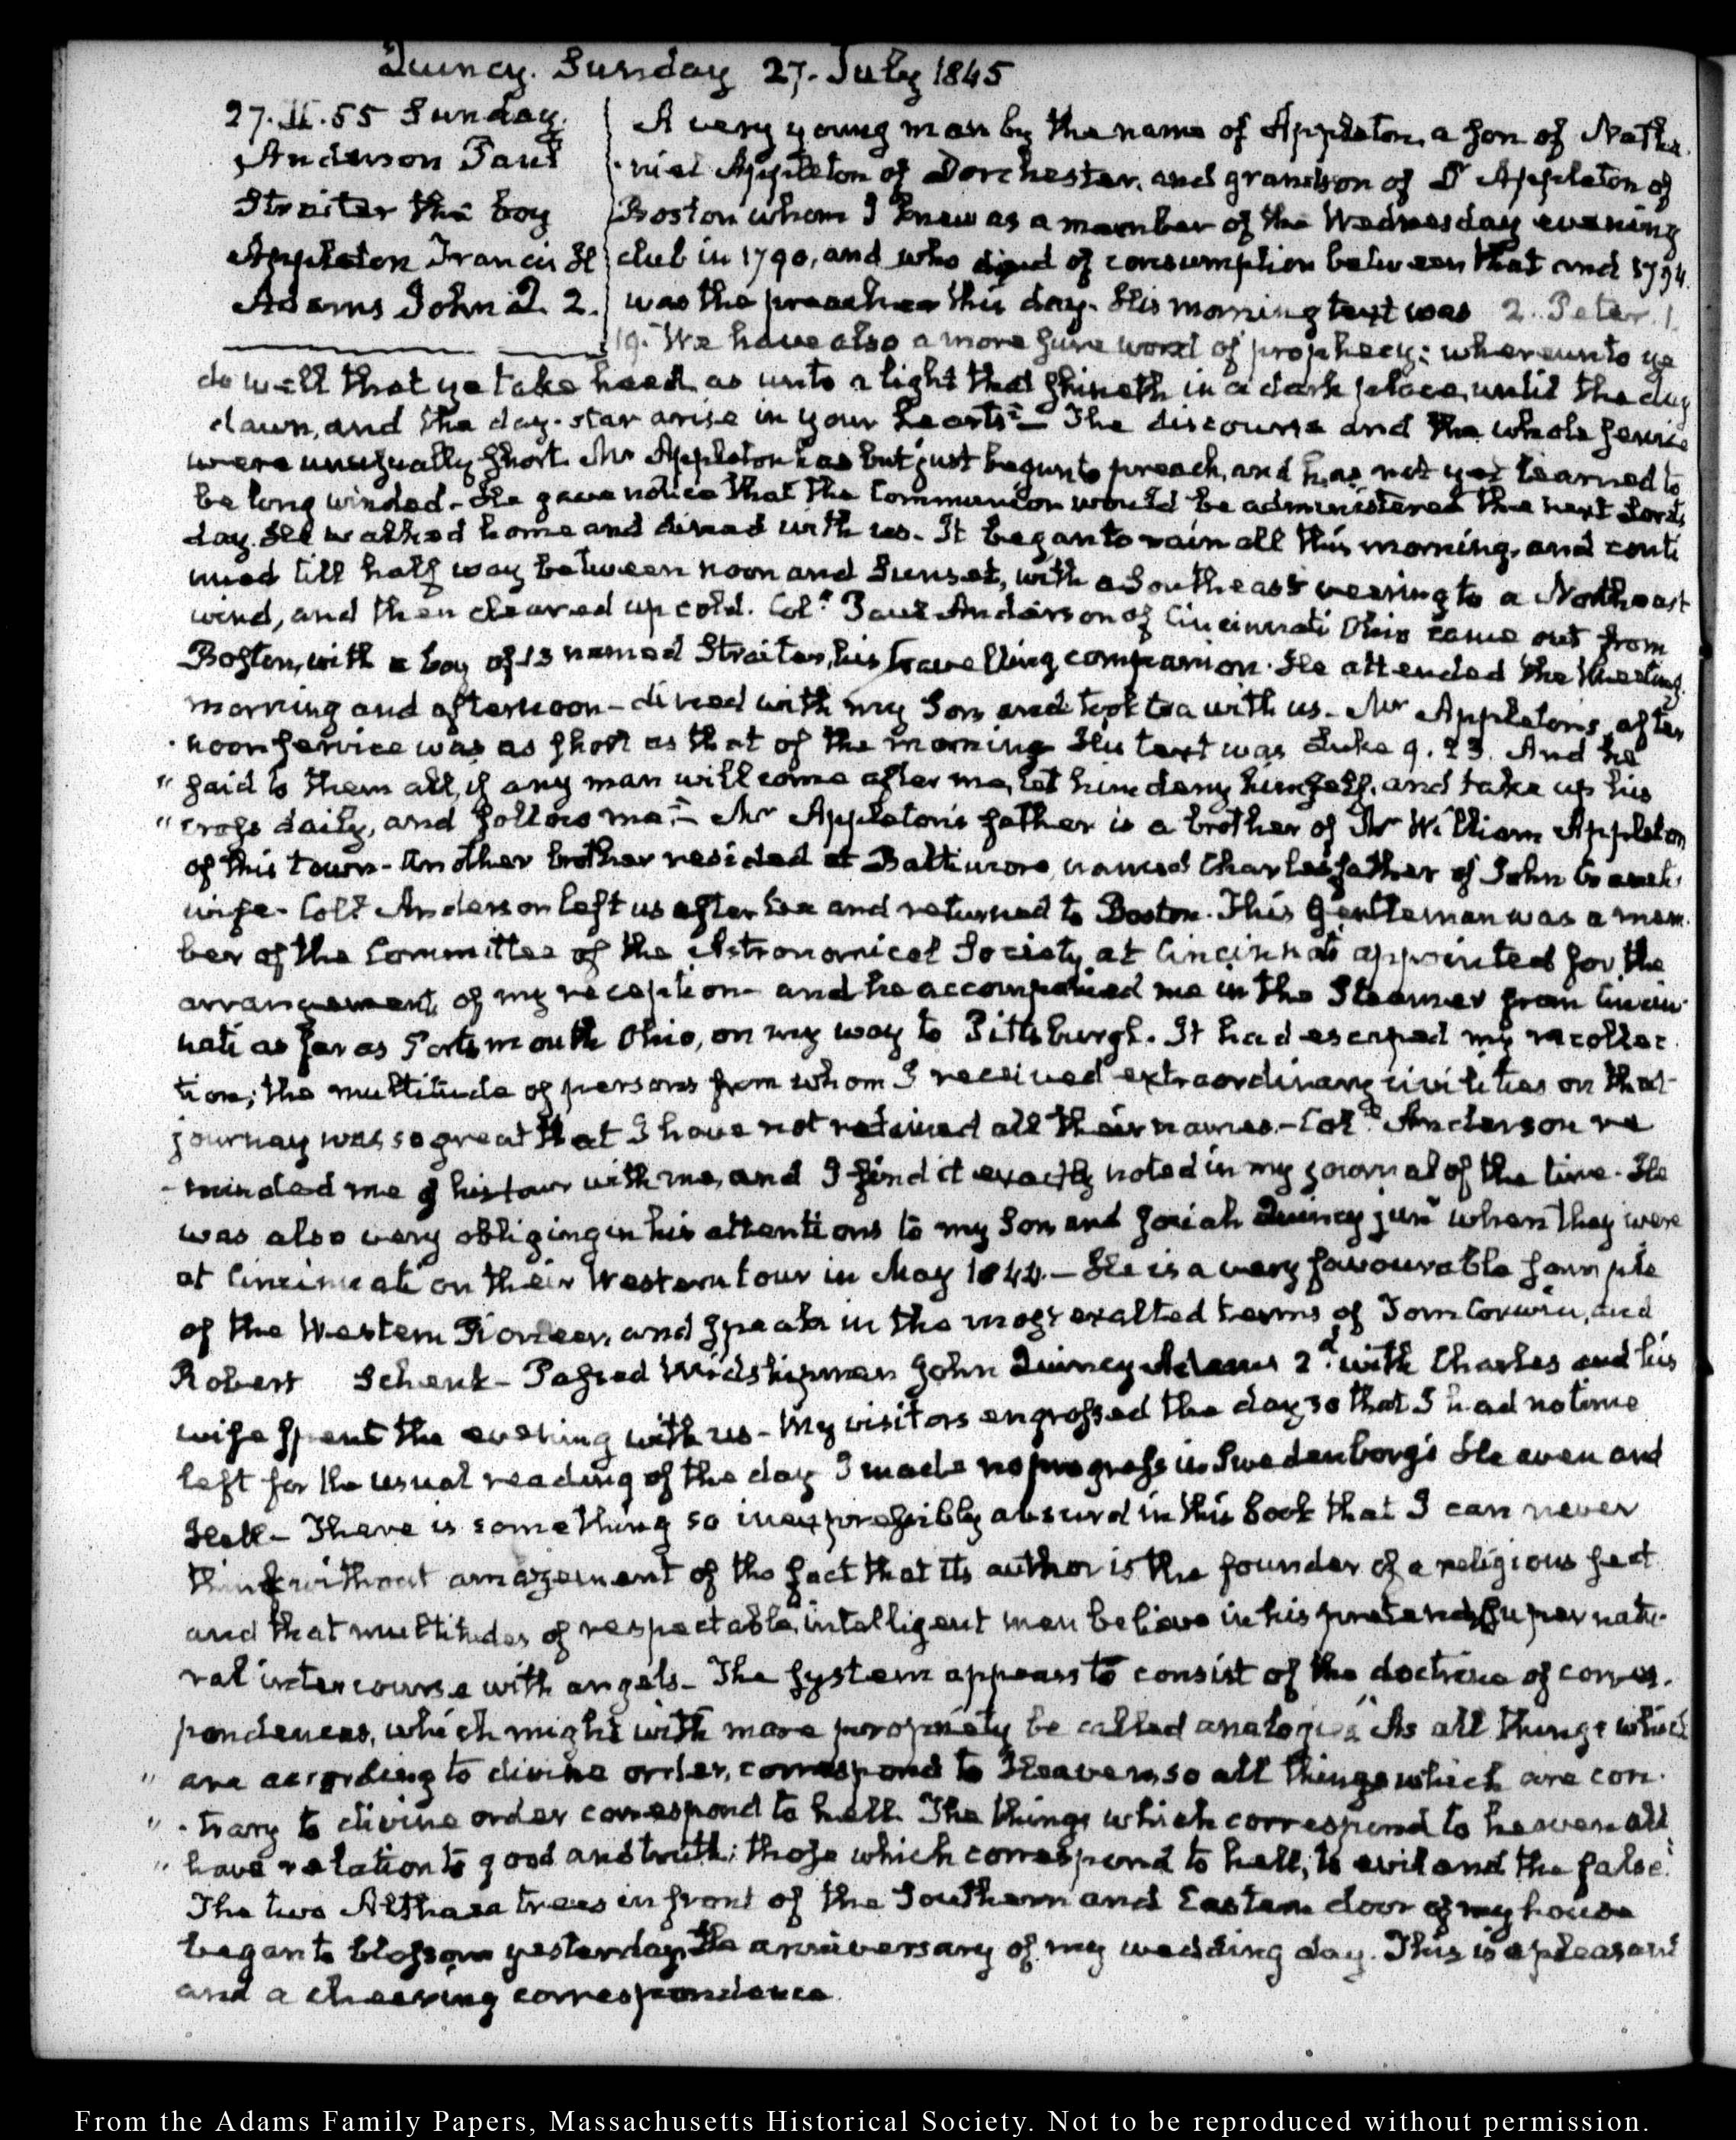 Quincy. Sunday 27. July 1845
27. IV. 55 Sunday.
Anderson Paul
Straiter the boy
Appleton Francis H
Adams John Q. 2.
A very young man by the name of Appleton, a son of Natha
niel Appleton of Dorchester, and grandson of Dr Appleton of
Boston whom I knew as a member of the Wednesday evening
club in 1790, and who died of consumption between that and 1794.
was the preacher this day. His morning text was 2. Peter. 1.
19. "We have also a more sure word of prophecy; whereunto ye
do well that ye take heed, as unto a light that shineth in a dark place, until the day
dawn, and the day-star arise in your hearts"— The discourse and the whole service
were unusually short. Mr Appleton has but just begun to preach, and has not yet learned to
be long winded- He gave notice that the Communion would be administered the next Lords
day. He walked home and dined with us. It began to rain all this morning, and conti
nued till half way between noon and Sunset, with a Southeast veering to a Northeast
wind, and then cleared up cold. Coll. Paul Anderson of Cincinnati Ohio came out from
Boston, with a boy of 13 named Straiter, his travelling companion. He attended the Meeting
morning and afternoon- dined with my Son and took tea with us- Mr Appleton's after
noon service was as short as that of the morning His text was Luke 9. 23. And he
" said to them all, if any man will come after me, let him deny himself, and take up his
" cross daily, and follow me."- Mr Appleton's father is a brother of Mr William Appleton
of this town- Another brother resided at Baltimore, named Charles, father of John
wife- Coll. Anderson left us after tea and returned to Boston. This Gentleman was a mem
ber of the Committee of the Astronomical Society at Cincinnati appointed for the
arrangement of my reception- and he accompanied me in the Steamer from Cincin
nati as far as Portsmouth Ohio, on my way to Pittsburgh. It had escaped my recollec
tion; the multitude of persons from whom I received extraordinary civilities on that
journey was so great that I have not retained all their names.- Coll. Anderson re
-minded me of his tour with me, and I find it exactly noted in my journal of the time. He
was also very obliging in his attentions to my Son and Josiah Quincy junr when they were
at Cincinnati on their Western tour in May 1844.— He is a very favourable sample
of the Western Pioneer, and speaks in the most exalted terms of Tom Corwin, and
Robert Schenk- Passed Midshipman John Quincy Adams 2d. with Charles and his
wife spent the evening with us- My visitors engrossed the day so that I had no time
left for the usual reading of the day I made no progress in Swedenborg's Heaven and
Hell- There is something so inexpressibly absurd in this book that I can never
think without amazement of the fact that its author is the founder of a religious sect
and that multitudes of respectable, intelligent men believe in his pretended supernatu-
ral intercourse with angels- The system appears to consist of the doctrine of corres-
pondences, which might with more propriety be called analogies "As all things which
" are according to divine order, correspond to Heaven, so all things which are con-
" -trary to divine order correspond to hell. The things which correspond to heaven all
" have relation to good and truth; those which correspond to hell, to evil and the false."
The two Althaea trees in front of the Southern and Eastern door of my house
began to blossom yesterday, the anniversary of my wedding day. This is a pleasant
and a cheering correspondence.
From the Adams Family Papers, Massachusetts Historical Society. Not to be reproduced without permission.